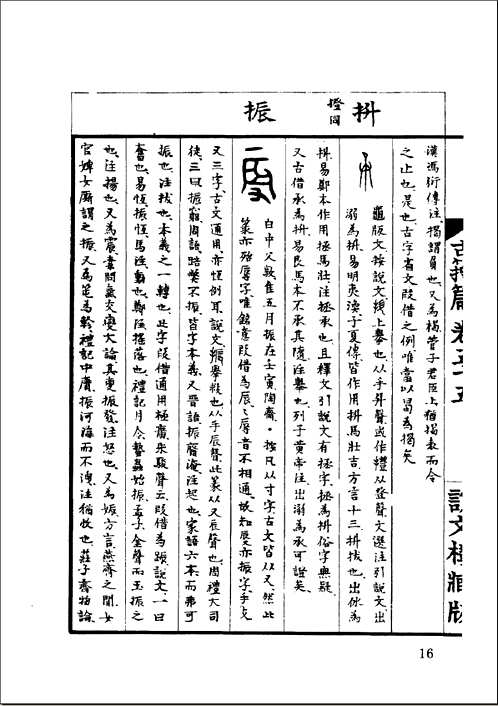 古籀篇 卷五十五
說文樓藏版
漢馮衍傳注揭謂負也又為楬管子君臣上猶揭表而令
之止也是也古字省文叚借之例唯當以曷為揭矣
抍
撜同
龜版文按說文抍上舉也从手升聲或作撜从登聲文選注引說文出
溺為抍易明夷渙子夏傳皆作用抍馬壯吉方言十三抍拔也出休為
抍易鄭本作用拯馬壯注拯承也且釋文引說文有拯字拯為抍俗字無疑
又古借承為抍易艮馬本不承其隨注舉也列子黃帝注出溺為承可證矣
振
白中父敦隹五月振在壬寅陶齋・按凡从寸字古文皆从又然此
篆亦殆辱字唯銘意叚借為辰辰辱音不相通故知是亦振字手又
又三字古文通用亦恆例耳說文振舉救也从手辰聲此篆从又辰聲也周禮大司
徒三曰振窮周語眡獎不振皆字本義又晉語振廢淹注起也家語六本而弗可
振也注拔也本義之一轉也此字叚借通用極廣朱駿聲云叚借為蹍說文一曰
奮也易恆振恆馬注動也鄭注搖落也禮記月令蟄蟲始振孟子金聲而玉振之
也注揚也又為震素問氣交變大論其變振發注怒也又為娠方言燕齊之間女
官婢女廝謂之振又為
禮記中庸振河海而不洩注猶收也莊子齊物論
16